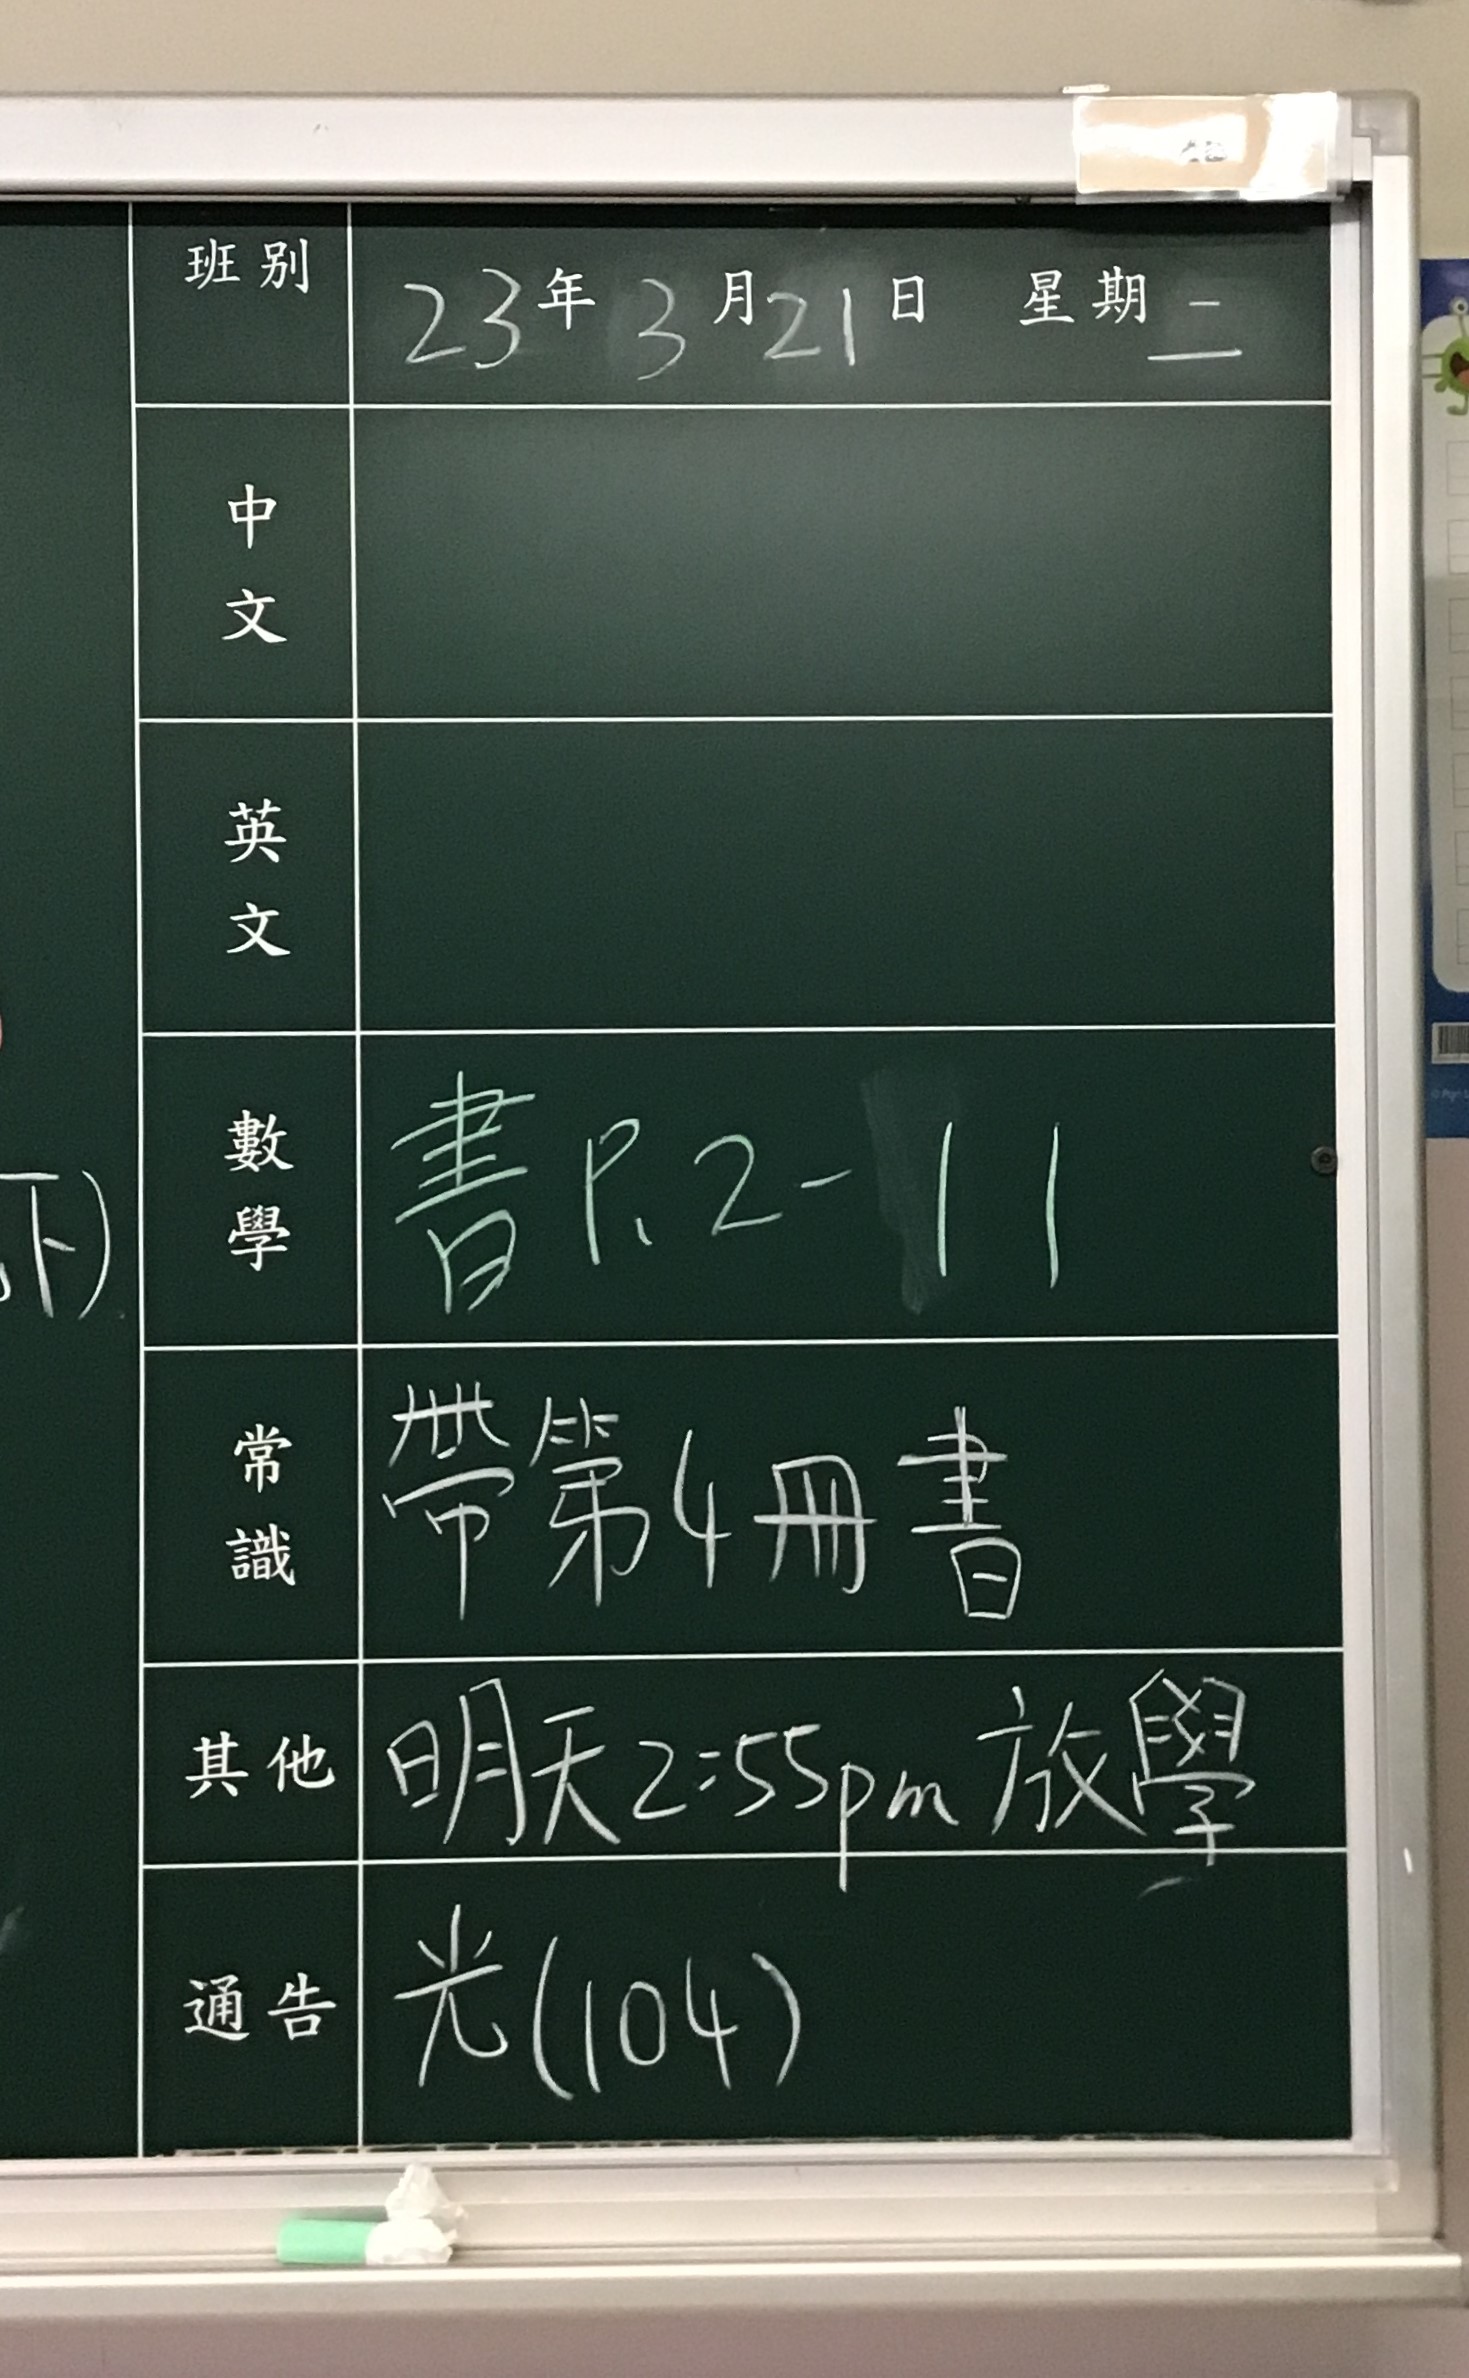 班別 23年3月21日 星期二
中文
英文
數學 書P.2-11
常識 帶第4冊書
其他 明天2:55pm放學
通告 光(104)
下)